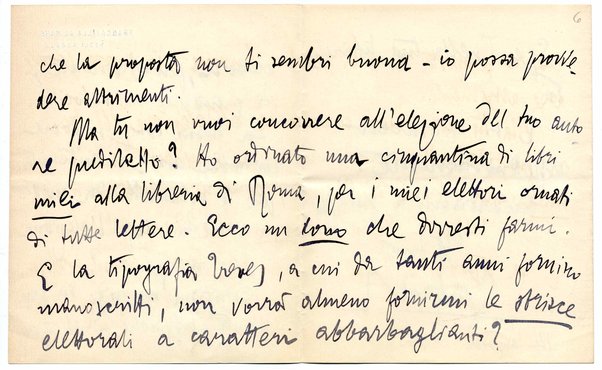 6
che la proposta non ti sembri buona – io possa provve
dere altrimenti.
Ma tu non vuoi concorrere all'elezione del tuo auto
re prediletto? Ho ordinato una cinquantina di libri
miei alla libreria di Roma, per i miei elettori ornati
di tutte lettere. Ecco un dono che dovresti farmi.
E la tipografia Treves, a cui da tanti anni fornisco
manoscritti, non vorrà almeno fornirmi le strisce
elettorali a caratteri abbarbaglianti?